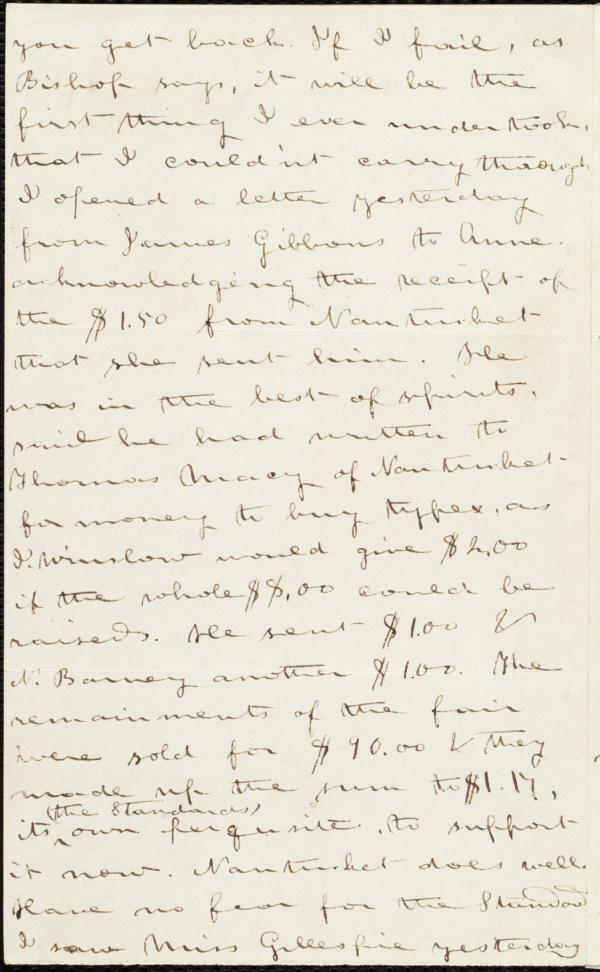 you get back. If I fail, as
Bishop says, it will be the
first thing I ever undertook,
that I could'nt carry through
I opened a letter yesterday
from James Gibbons to Anne.
acknowledging the receipt of
the $1.50 from Nantucket
that she sent him. He
was in the best of spirits,
said he had written to
Thomas Macy of Nantucket
for money to buy types, as
I. Winslow would give $2,00
if the whole $8,00 could be
raised. He sent $1.00 &
N. Barney another $1.00. The
remainments of the fair
were sold for $90.00 & they
made up the sum to $1.17,
(the Standards)
its own perquisite, to support
it now. Nantucket does well.
Have no fear for the Standard
I saw Miss Gillespie yesterday